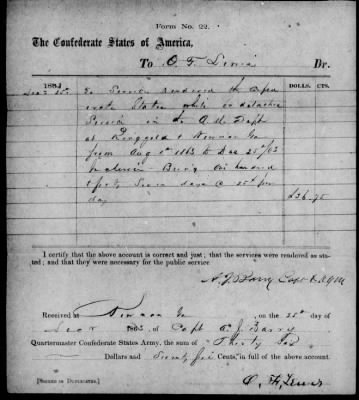 Form No. 22.
The Confederate States of America,
To O. F. Lewis Dr.
186 DOLLS. CTS.
Dec 25th To Service rendered the
States while on detached
Service in the Dept
at Ringgold & Newnan Ga
from Aug 1st 1863 to Dec 25th /63
inclusive Being one hundred
& forty Seven days @ 25¢ per
day $36.75
I certify that the above account is correct and just; that the services were rendered as sta-
ted; and that they were necessary for the public service
Barry Capt
Received at Newnan Ga, on the 25th day of
Dec 1863, of Capt Barry
Quartermaster Confederate States Army, the sum of Thirty Six
Dollars and Seventy five Cents, in full of the above account.
[SIGNED IN DUPLICATES.] Lewis